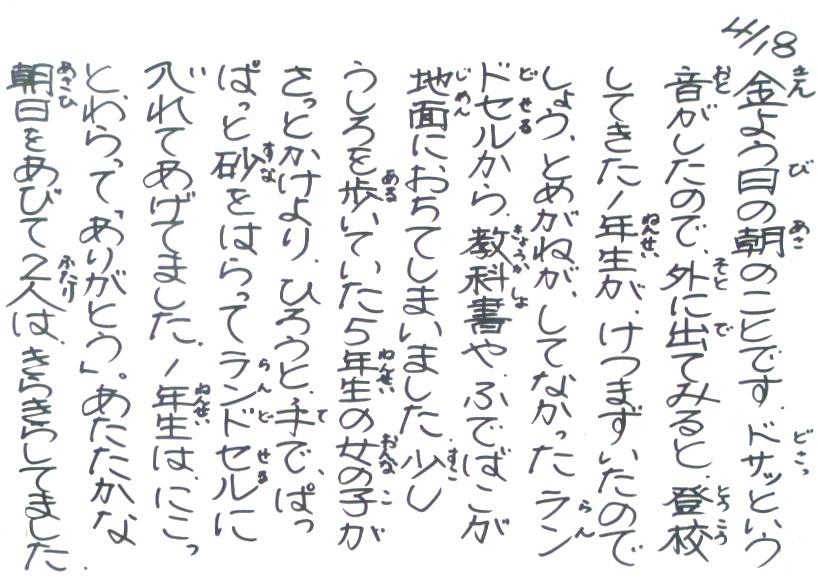 4/18
金よう日の朝のことです。ドサッという
音がしたので、外に出てみると、登校
してきた1年生が、けつまずいたので
しょう、とめがねが、してなかったラン
ドセルから、教科書や、ふでばこが
地面におちてしまいました。少し
うしろを歩いていた5年生の女の子が
さっとかけより、ひろうと、手で、ぱっ
ぱっと砂をはらってランドセルに
入れてあげてました。1年生は、にこっ
と、わらって「ありがとう」。あたたかな
朝日をあびて2人は、きらきらしてました。